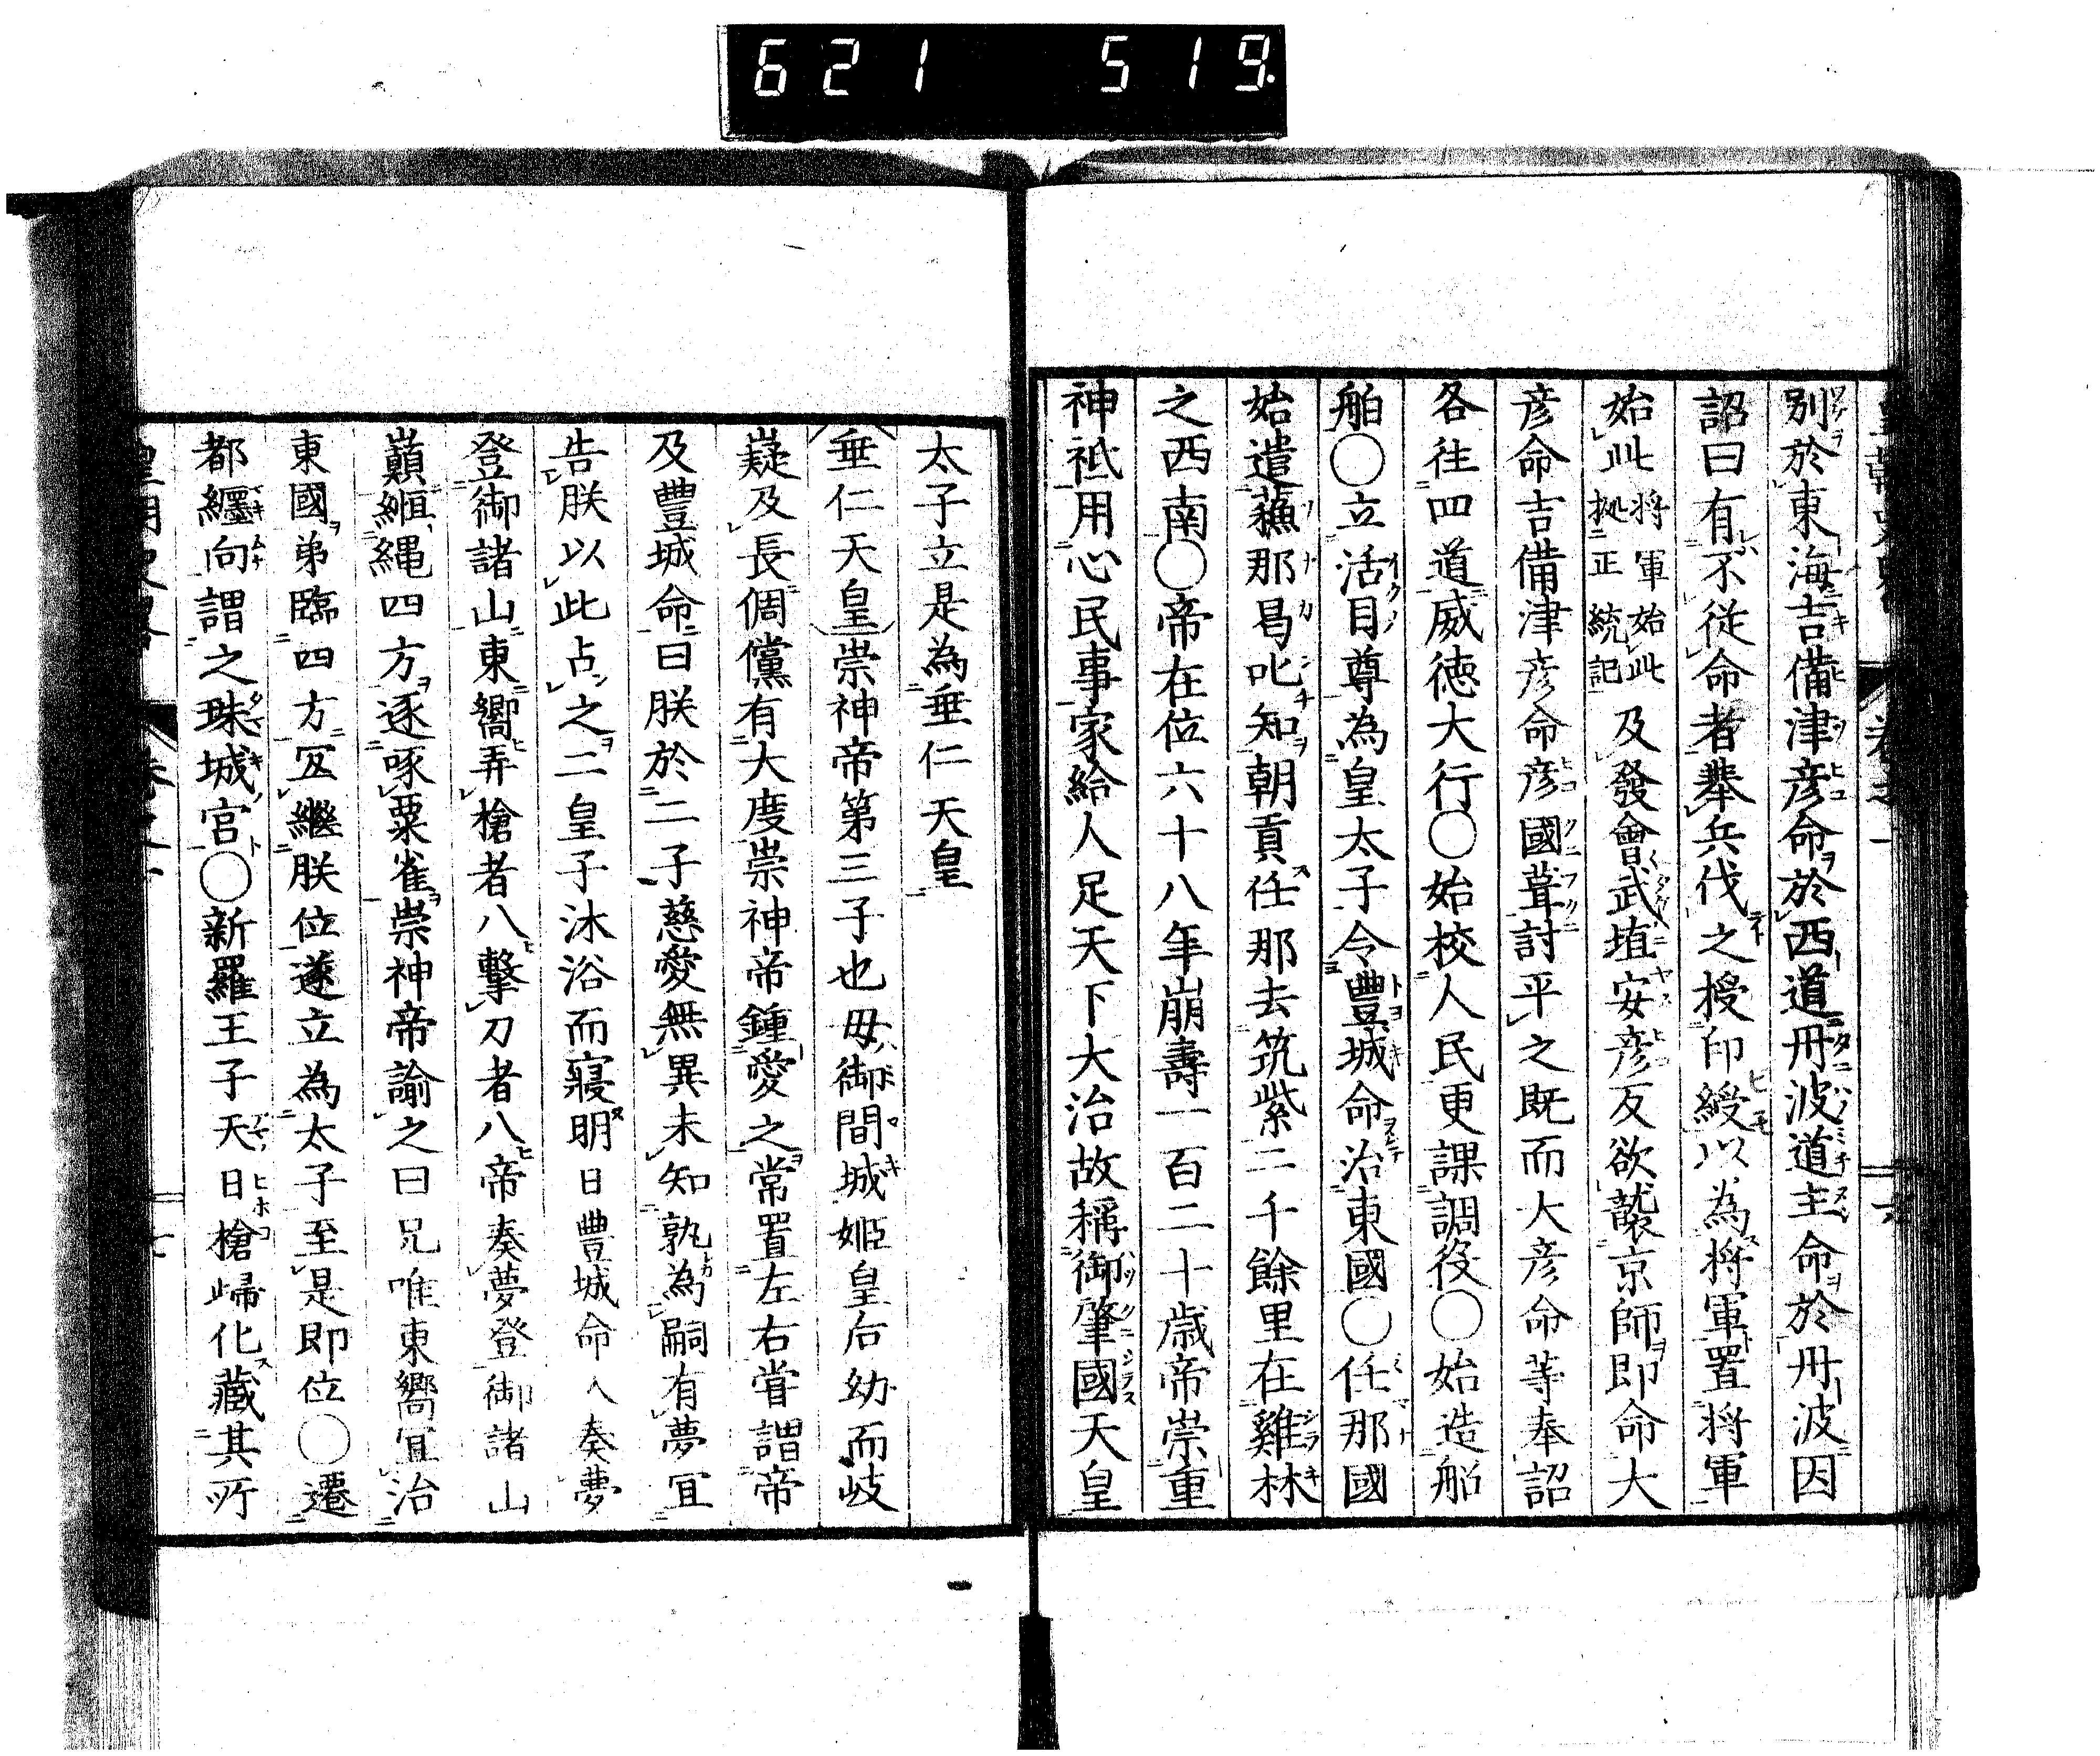 621 519
別於東海吉備津彦命於西道丹波道主命於丹波因
詔曰有不從命者舉兵伐之授印綬以為將軍置將軍
始此將軍始此拠正統記及發會武埴安彦反欲襲京師即命大
彦命吉備津彦命彦國葺討平之既而大彦命等奉詔
各往四道威徳大行○始校人民更課調役○始造船
舶○立活目尊為皇太子令豐城命治東國○任那國
始遣蘓那曷叱知朝貢任那去筑紫二千餘里在雞林
之西南○帝在位六十八年崩壽一百二十歳帝崇重
神祇用心民事家給人足天下大治故稱御肇國天皇
太子立是為垂仁天皇
垂仁天皇崇神帝第三子也母御間城姫皇后幼而岐
嶷及長倜儻有大度崇神帝鍾愛之常置左右嘗謂帝
及豐城命曰朕於二子慈愛無異未知孰為嗣有夢宜
告朕以此占之二皇子沐浴而寢明日豐城命入奏夢
登御諸山東嚮弄槍者八擊刀者八帝奏夢登御諸山
巔縆繩四方逐啄粟雀崇神帝諭之曰兄唯東嚮宜治
東國弟臨四方宜繼朕位遂立為太子至是即位○遷
都纏向謂之珠城宮○新羅王子天日槍歸化藏其所